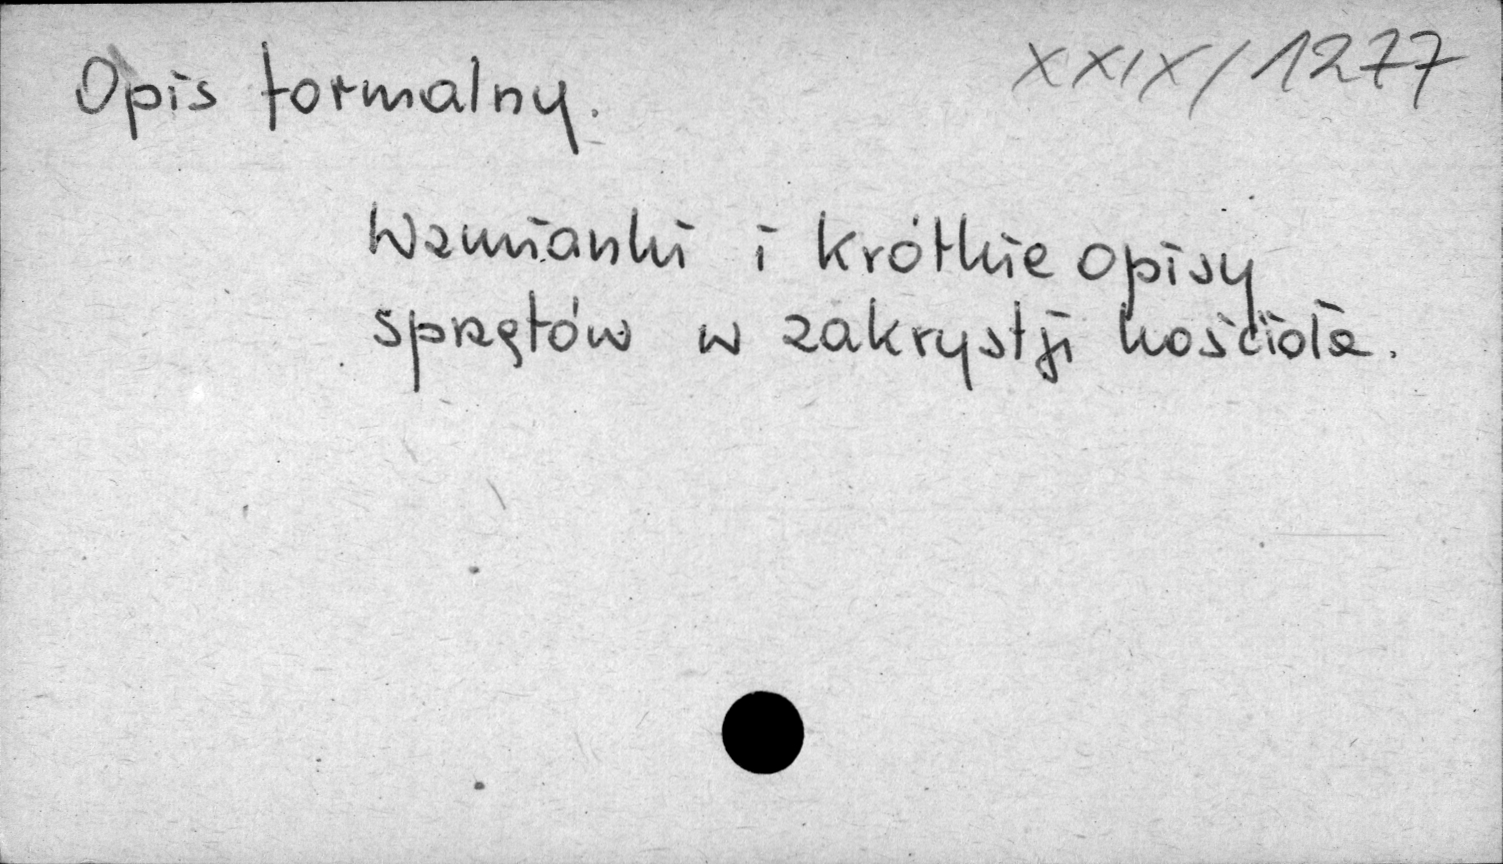 XXIX/1277
Opis formalny.
Wzmianki i krótkie opisy
sprzętów w zakrystji kościoła.